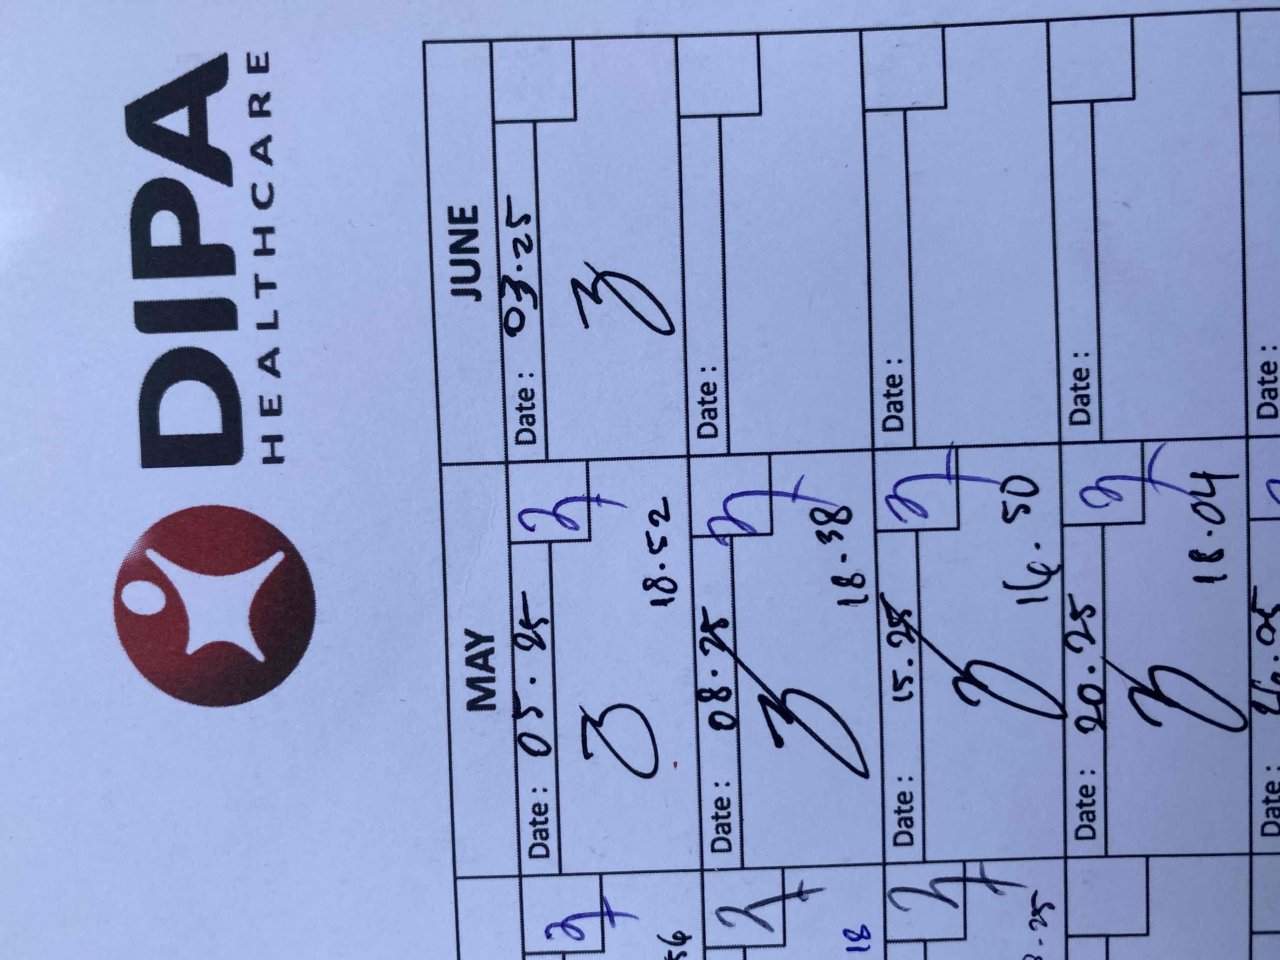 DIPA
HEALTHCARE
MAY
JUNE
Date : 05.25
18.52
Date : 03.25
Date : 08.25
18.38
Date :
Date : 15.25
16.50
Date :
Date : 20.25
18.04
Date :
Date :
Date :
56
18